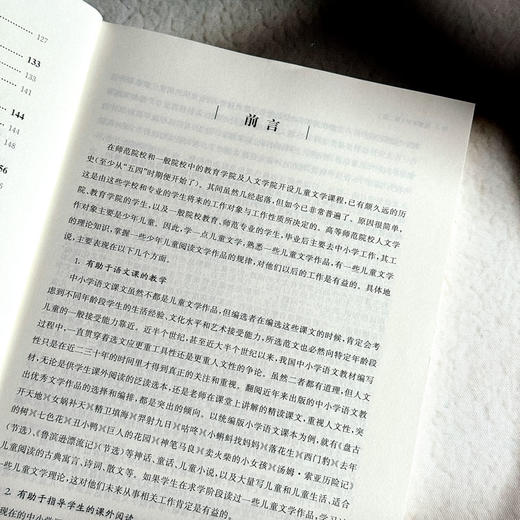 127
133
133
141
144
144
148
156
156
前言
在师范院校和一般院校中的教育学院及人文学院开设儿童文学课程，已有颇久远的历
史（至少从“五四”时期便开始了）。其间虽然几经起落，但如今已非常普遍了。原因很简单，
这是由这些学校和专业的学生将来的工作对象与工作性质所决定的。高等师范院校人文学
院、教育学院的学生，以及一般院校教育、师范专业的学生，毕业后主要去中小学工作，其工
作对象主要是少年儿童。因此，学一点儿童文学，熟悉一些儿童文学作品，有一些儿童文学
的理论知识，掌握一些少年儿童阅读文学作品的规律，对他们以后的工作是有益的。具体地
说，主要表现在以下几个方面。
1. 有助于语文课的教学
中小学语文课文虽然不都是儿童文学作品，但编选者在编选这些课文的时候，肯定会考
虑到不同年龄段学生的生活经验、文化水平和艺术接受能力，所选范文也必然向特定年龄段
儿童的一般接受能力靠近。近半个世纪，甚至近大半个世纪以来，我国中小学语文教材编写
过程中，一直贯穿着选文应更重工具性还是更重人文性的争论。虽然二者都有道理，但人文
性只是在近二三十年的时间里才得到真正的关注和重视。翻阅近年来出版的中小学语文教
材，无论是供学生课外阅读的泛读选本，还是老师在课堂上讲解的精读课文，重视人文性，突
出优秀文学作品的选择和编排，都是突出的倾向。以统编版小学语文课本为例，就有《盘古
开天地》《女娲补天》《精卫填海》《羿射九日》《咕咚》《小蝌蚪找妈妈》《落花生》《西门豹》《去年
的树》《七色花》《丑小鸭》《巨人的花园》《神笔马良》《卖火柴的小女孩》《汤姆·索亚历险记》
（节选）、《鲁滨逊漂流记》（节选）等神话、童话、儿童小说，以及大量写儿童和儿童生活、适合
儿童阅读的古典寓言、诗词、散文等。如果学生在求学阶段读过一些儿童文学作品，学习过
一些儿童文学理论，这对他们未来从事相关工作肯定是有益的。
2. 有助于指导学生的课外阅读